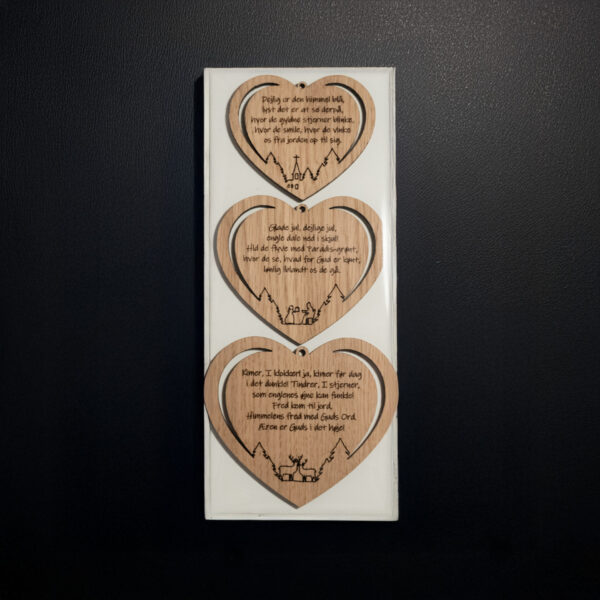 Dejlig er den himmel blå,
lyst det er at se derpå,
hvor de gyldne stjerner blinke,
hvor de smile, hvor de vinke
os fra jorden op til sig.
Glade jul, dejlige jul,
engle dale ned i skjul!
Hid de flyve med Paradisgrønt,
hvor de se, hvad for Gud er kønt,
lønlig iblandt os de gå.
Kimer, I klokker! ja, kimer før dag
i det dunkle! Tindrer, I stjerner,
som englenes øjne kan funkle!
Fred kom til jord,
Himmelens fred med Guds Ord.
Æren er Guds i det høje!